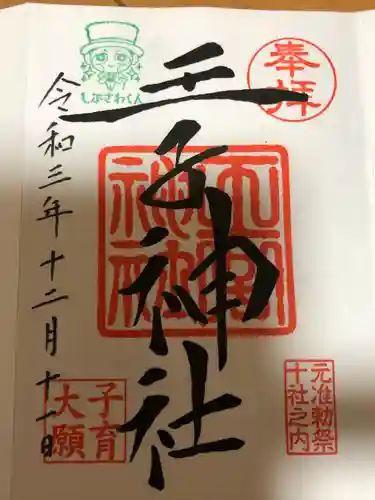 奉拝
元准勅祭
十社之内
王子神社
王子神社
しぶさわくん
令和三年十二月十一日
子育
大願